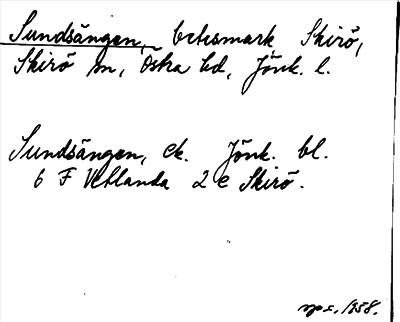 Sundsängen, betesmark Skirö,
Skirö sn, Östra hd, Jönk. l.
Sundsängen, ek. Jönk. bl.
6 F Vetlanda 2 e Skirö.
1958.